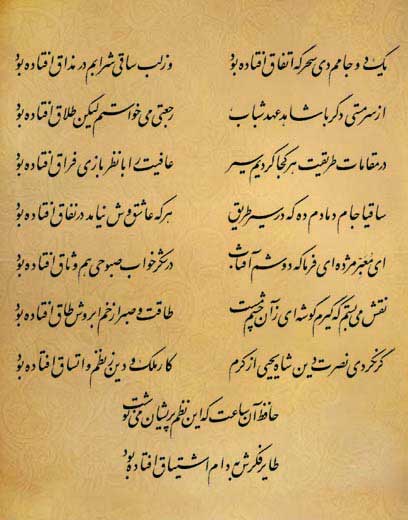 یک دو جامم دی سحرگه اتفاق افتاده بود وز لب ساقی شرابم در مذاق افتاده بود
از سر مستی دگر با شاهد عهد شباب رجعتی می‌خواستم لیکن طلاق افتاده بود
در مقامات طریقت هر کجا کردیم سیر عافیت را با نظربازی فراق افتاده بود
ساقیا جام دمادم ده که در سیر طریق هر که عاشق وش نیامد در نفاق افتاده بود
ای معبر مژده‌ای فرما که دوشم آفتاب در شکرخواب صبوحی هم وثاق افتاده بود
نقش می‌بستم که گیرم گوشه‌ای زان چشم مست طاقت و صبر از خم ابروش طاق افتاده بود
گر نکردی نصرت دین شاه یحیی از کرم کار ملک و دین ز نظم و اتساق افتاده بود
حافظ آن ساعت که این نظم پریشان می‌نوشت
طایر فکرش به دام اشتیاق افتاده بود